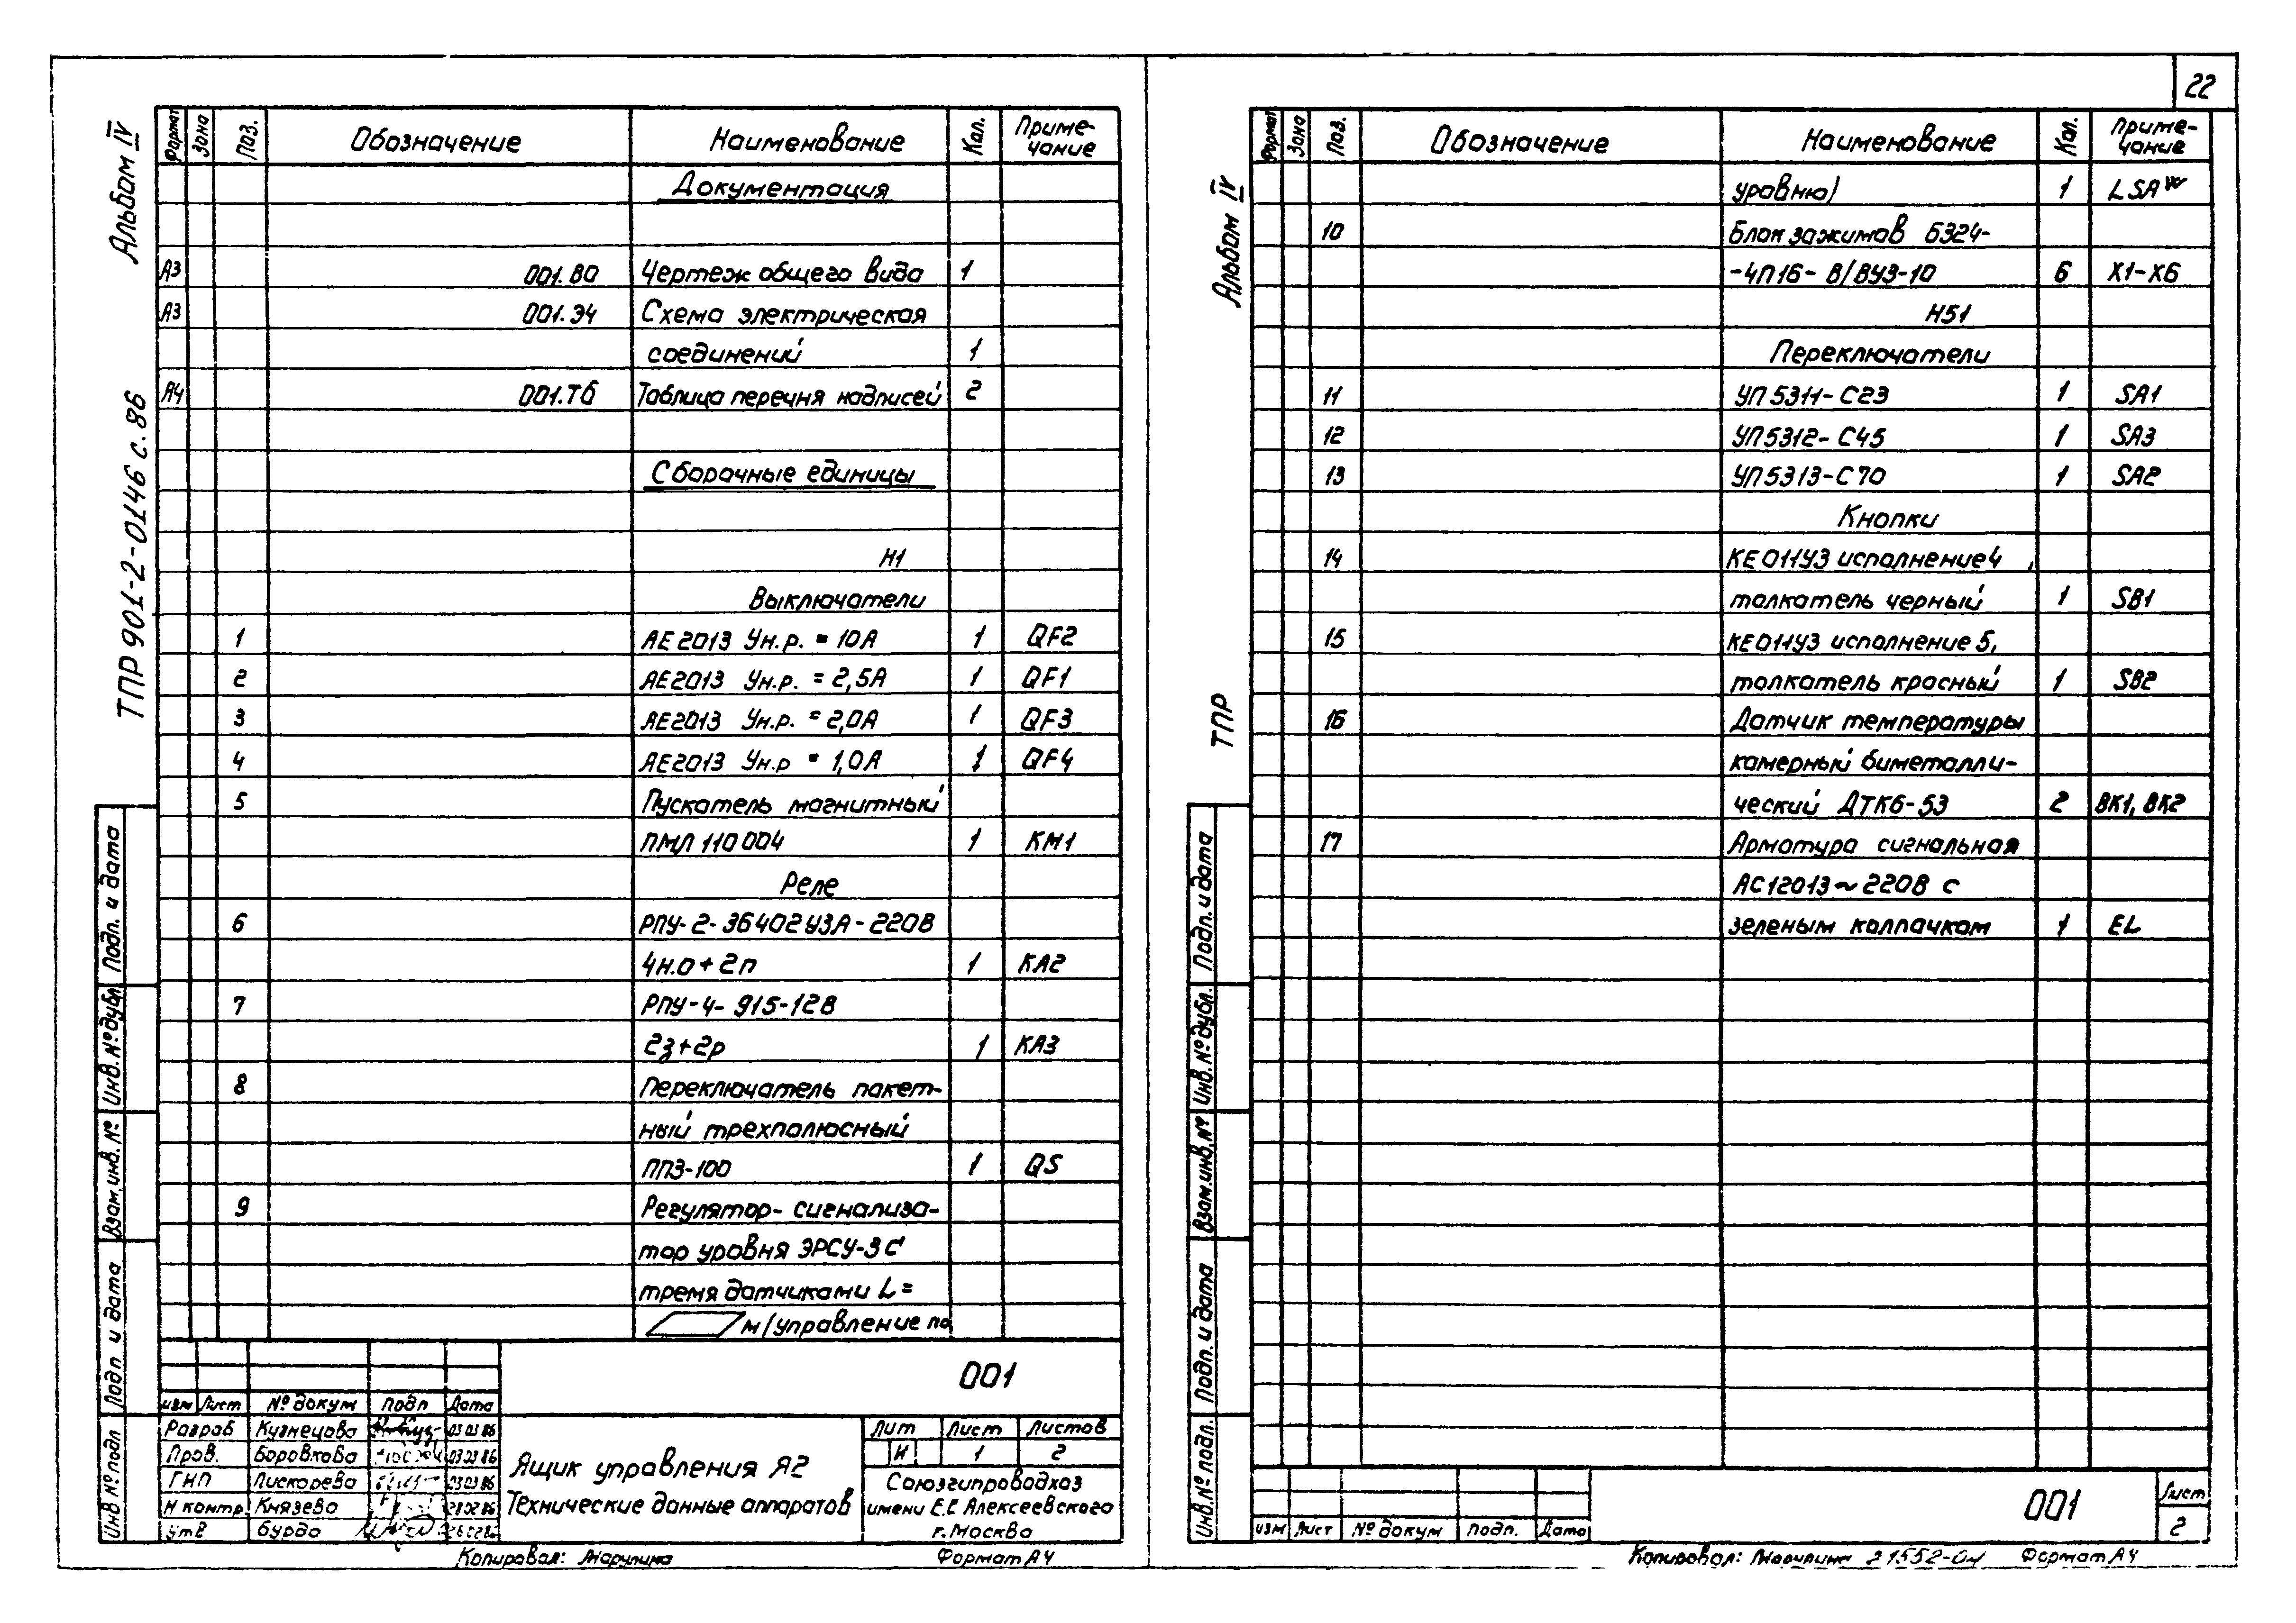 Альбом IV
ТПР 901-2-0146 с.86
Формат Зона Поз. Обозначение Наименование Кол. Приме-
чание
Документация
А3 001.ВО Чертеж общего вида 1
А3 001.Э4 Схема электрическая
соединений 1
А4 001.Тб Таблица перечня надписей 2
Сборочные единицы
Н1
Выключатели
1 АЕ2013 Ун.р. = 10А 1 QF2
2 АЕ2013 Ун.р. = 2,5А 1 QF1
3 АЕ2013 Ун.р. = 2,0А 1 QF3
4 АЕ2013 Ун.р = 1,0А 1 QF4
5 Пускатель магнитный
ПМЛ 110004 1 КМ1
Реле
6 РПУ-2-36402У3А-220В
4н.о+2п 1 КА2
7 РПУ-4-915-12В
2з+2р 1 КА3
8 Переключатель пакет-
ный трехполюсный
ПП3-100 1 QS
9 Регулятор-сигнализа-
тор уровня ЭРСУ-3 с
тремя датчиками L=
м/управление по
Подп. и дата
Инв.№дубл.
Взам.инв.№
Подп и дата
Инв №подл
001
изм Лист №докум Подп Дата
Разраб Кузнецова 03 03 86
Пров. Боровкова 03 03 86
ГИП Пискорева 03 03 86
Н контр. Князева 28 02 86
Утв Бурдо
Ящик управления Я2
Технические данные аппаратов
Лит Лист Листов
И 1 2
Союзгипроводхоз
имени Е.Е Алексеевского
г.Москва
Копировал: Марулина Формат А4
22
Альбом IV
ТПР
Формат Зона Поз. Обозначение Наименование Кол. Приме-
чание
уровню) 1 LSAW
10 Блок зажимов Б324-
-4П16-В/ВУ3-10 6 Х1-Х6
Н51
Переключатели
11 УП5311-С23 1 SA1
12 УП5312-С45 1 SA3
13 УП5313-С70 1 SA2
Кнопки
14 КЕ011У3 исполнение 4,
толкатель черный 1 SB1
15 КЕ011У3 исполнение 5,
толкатель красный 1 SB2
16 Датчик температуры
камерный биметалли-
ческий ДТКб-53 2 ВК1, ВК2
17 Арматура сигнальная
АС12013~220В с
зеленым колпачком 1 EL
Подп. и дата
Инв.№дубл.
Взам.инв.№
Подп. и дата
Инв.№подл.
001
Лист
2
изм Лист №докум Подп. Дата
Копировал: Марулина 21552-04 Формат А4